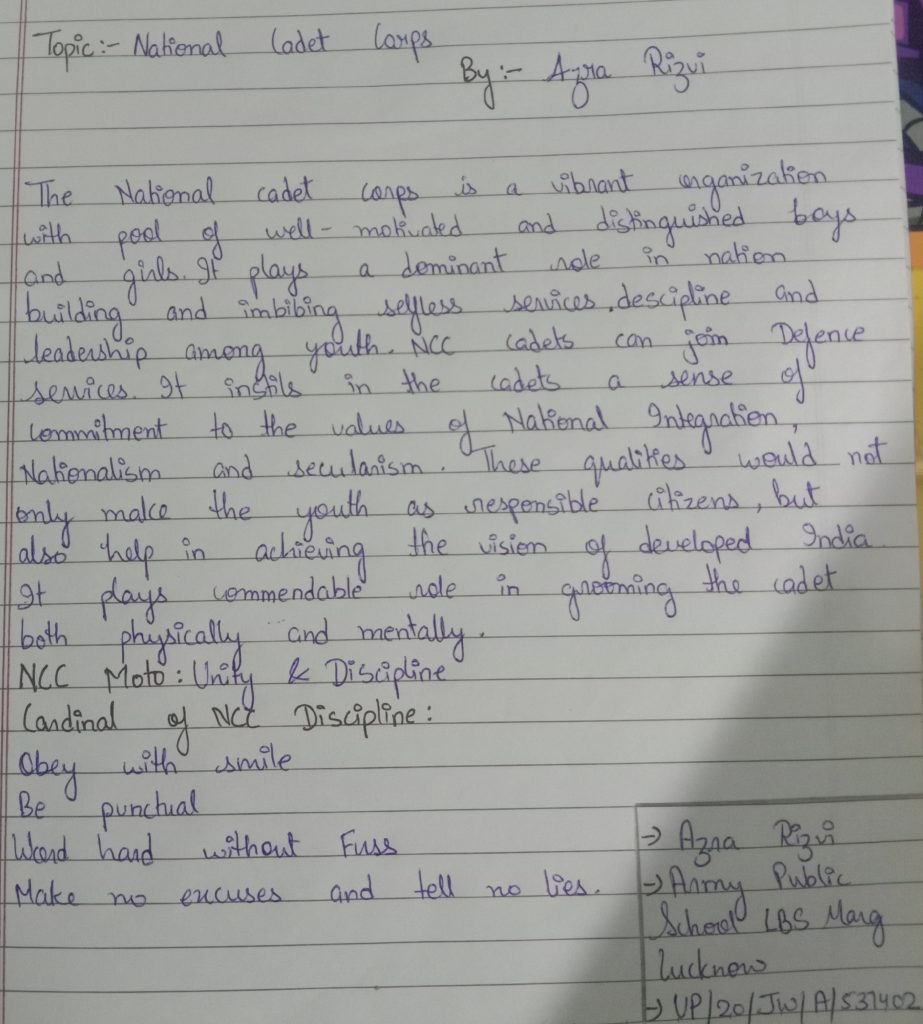 Topic:- National Cadet Corps
By:- Azra Rizvi
The National cadet corps is a vibrant organization
with pool of well-motivated and distinguished boys
and girls. It plays a dominant role in nation
building and imbibing selfless services, descipline and
leadership among youth. NCC cadets can join Defence
services. It instils in the cadets a sense of
commitment to the values of National Integration,
Nationalism and secularism. These qualities would not
only make the youth as responsible citizens, but
also help in achieving the vision of developed India
It plays commendable role in grooming the cadet
both physically and mentally.
NCC Moto: Unity & Discipline
Cardinal of NCC Discipline:
Obey with smile
Be punctual
Word hard without Fuss
Make no excuses and tell no lies.
→ Azra Rizvi
→ Army Public
School LBS Marg
Lucknow
→ UP/20/JW/A/537402